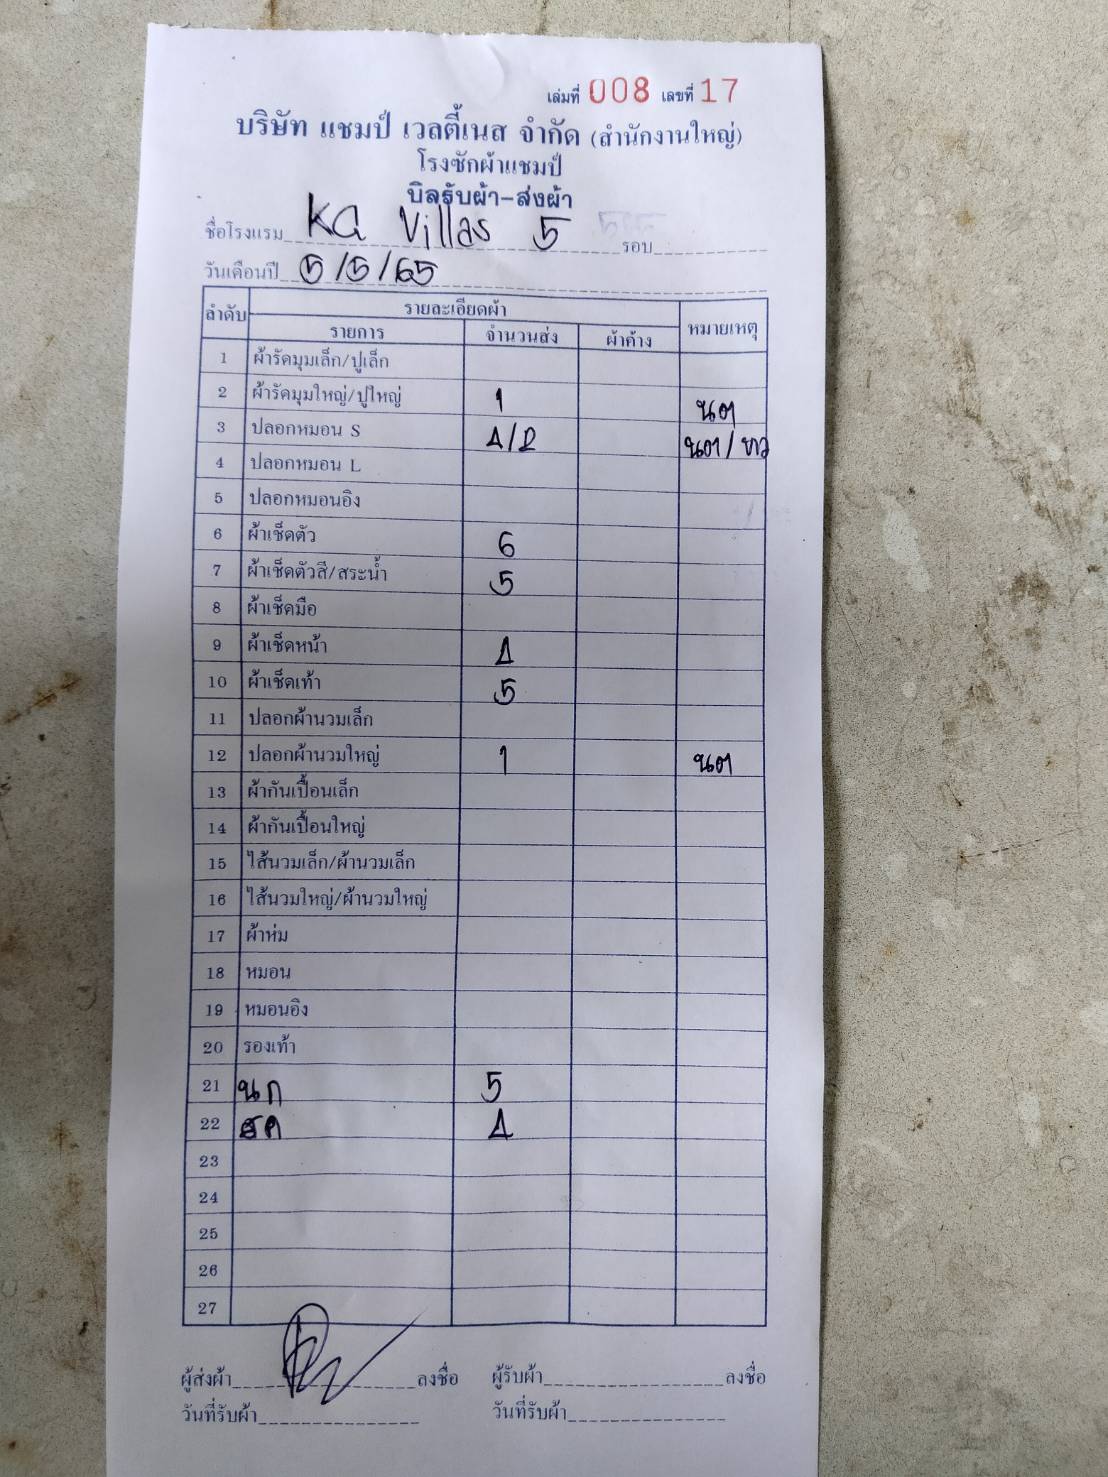 เล่มที่ 008 เลขที่ 17
บริษัท แชมป์ เวลตี้เนส จำกัด (สำนักงานใหญ่)
โรงซักผ้าแชมป์
บิลรับผ้า-ส่งผ้า
ชื่อโรงแรม Ka Villas 5 รอบ
วันเดือนปี 5/5/65
ลำดับ รายละเอียดผ้า หมายเหตุ
รายการ จำนวนส่ง ผ้าค้าง
1 ผ้ารัดมุมเล็ก/ปูเล็ก
2 ผ้ารัดมุมใหญ่/ปูใหญ่ 1 นต
3 ปลอกหมอน S 4/2 นต/ขาว
4 ปลอกหมอน L
5 ปลอกหมอนอิง
6 ผ้าเช็ดตัว 6
7 ผ้าเช็ดตัวสี/สระน้ำ 5
8 ผ้าเช็ดมือ
9 ผ้าเช็ดหน้า 4
10 ผ้าเช็ดเท้า 5
11 ปลอกผ้านวมเล็ก
12 ปลอกผ้านวมใหญ่ 1 นต
13 ผ้ากันเปื้อนเล็ก
14 ผ้ากันเปื้อนใหญ่
15 ไส้นวมเล็ก/ผ้านวมเล็ก
16 ไส้นวมใหญ่/ผ้านวมใหญ่
17 ผ้าห่ม
18 หมอน
19 หมอนอิง
20 รองเท้า
21 นก 5
22 4
23
24
25
26
27
ผู้ส่งผ้า ลงชื่อ ผู้รับผ้า ลงชื่อ
วันที่รับผ้า วันที่รับผ้า